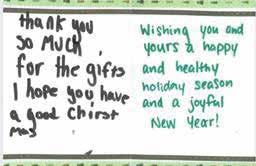 thank you
so MUCH
for the gifts
I hope you have
a good Chirst
mas
Wishing you and
yours a happy
and healthy
holiday season
and a joyful
New Year!